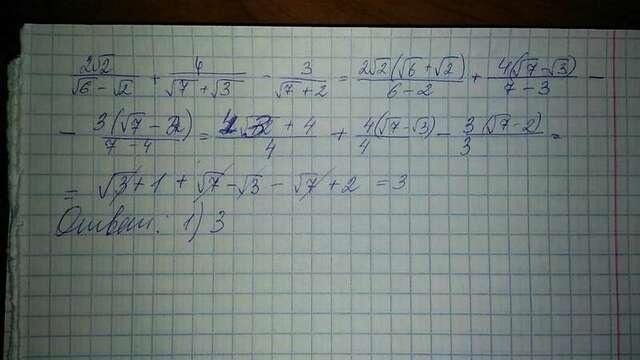 2√2/(√6 - √2) + 4/(√7 + √3) - 3/(√7 + 2) = 2√2(√6 + √2)/(6 - 2) + 4(√7 - √3)/(7 - 3) -
- 3(√7 - 2)/(7 - 4) = (4√3 + 4)/4 + 4(√7 - √3)/4 - 3(√7 - 2)/3 =
= √3 + 1 + √7 - √3 - √7 + 2 = 3
Ответ: 1) 3